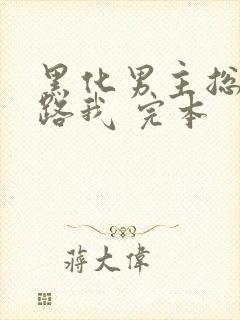 黑化男主总
路我 完本
蒋大偉